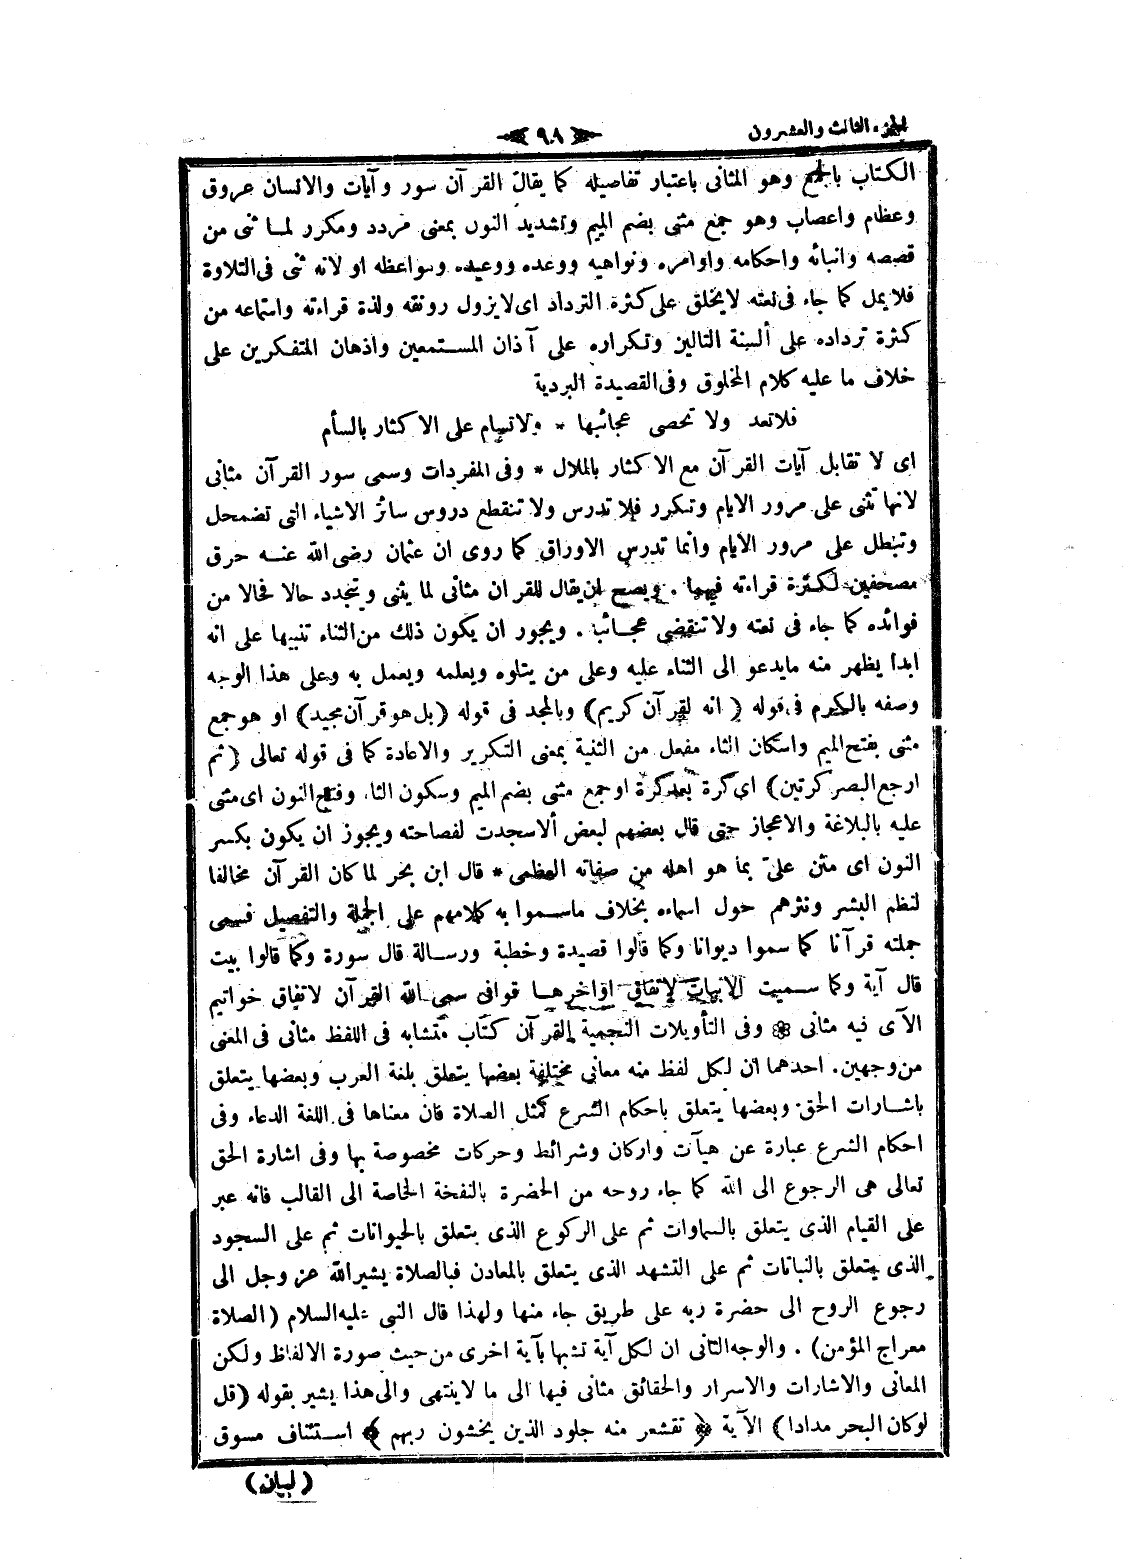 الجزء الثالث والعشرون
٩٨
الكتاب بالجمع وهو المثانى باعتبار تفاصيله كما يقال القرآن سور وآيات والانسان عروق
وعظام واعصاب وهو جمع مثنى بضم الميم وتشديد النون بمعنى مردد ومكرر لما ثنى من
قصصه وانبائه واحكامه واوامره ونواهيه ووعده ووعيده ومواعظه او لانه ثنى فى التلاوة
فلا يمل كما جاء فى نعته لا يخلق على كثرة الترداد اى لا يزول رونقه ولذة قراءته واستماعه من
كثرة ترداده على ألسنة التالين وتكراره على آذان المستمعين واذهان المتفكرين على
خلاف ما عليه كلام المخلوق وفى القصيدة البردية
فلا تعد ولا تحصى عجائبها * ولا تسام على الاكثار بالسأم
اى لا تقابل آيات القرآن مع الاكثار بالملال * وفى المفردات وسمى سور القرآن مثانى
لانها تثنى على مرور الايام وتكرر فلا تدرس ولا تنقطع دروس سائر الاشياء التى تضمحل
وتبطل على مرور الايام وانما تدرس الاوراق كما روى ان عثمان رضى الله عنه حرق
مصحفين لكثرة قراءته فيهما . ويصح ان يقال للقرآن مثانى لما يثنى ويتجدد حالا فحالا من
فوائده كما جاء فى نعته ولا تنقضى عجائبه . ويجوز ان يكون ذلك من الثناء تنبيها على انه
ابدا يظهر منه مايدعو الى الثناء عليه وعلى من يتلوه ويعلمه ويعمل به وعلى هذا الوجه
وصفه بالكرم فى قوله ( انه لقرآن كريم) وبالمجد فى قوله (بل هو قرآن مجيد) او هو جمع
مثنى بفتح الميم واسكان الثاء مفعل من الثنية بمعنى التكرير والاعادة كما فى قوله تعالى (ثم
ارجع البصر كرتين) اى كرة بعد كرة او جمع مثنى بضم الميم وسكون الثاء وفتح النون اى مثنى
عليه بالبلاغة والاعجاز حتى قال بعضهم لبعض ألا سجدت لفصاحته ويجوز ان يكون بكسر
النون اى مثن علىّ بما هو اهله من صفاته العظمى * قال ابن بحر لما كان القرآن مخالفا
لنظم البشر ونثرهم حول اسماءه بخلاف ماسموا به كلامهم على الجملة والتفصيل فسمى
جملته قرآنا كما سموا ديوانا وكما قالوا قصيدة وخطبة ورسالة قال سورة وكما قالوا بيت
قال آية وكما سميت الابيات لاتفاق اواخرها قوافى سمى الله القرآن لاتفاق خواتيم
الآى فيه مثانى ❁ وفى التأويلات النجمية القرآن كتاب متشابه فى اللفظ مثانى فى المعنى
من وجهين. احدهما ان لكل لفظ منه معانى مختلفة بعضها يتعلق بلغة العرب وبعضها يتعلق
باشارات الحق وبعضها يتعلق باحكام الشرع كمثل الصلاة فان معناها فى اللغة الدعاء وفى
احكام الشرع عبارة عن هيآت واركان وشرائط وحركات مخصوصة بها وفى اشارة الحق
تعالى هى الرجوع الى الله كما جاء روحه من الحضرة بالنفخة الخاصة الى القالب فانه عبر
على القيام الذى يتعلق بالسماوات ثم على الركوع الذى يتعلق بالحيوانات ثم على السجود
الذى يتعلق بالنباتات ثم على التشهد الذى يتعلق بالمعادن فبالصلاة يشير الله عز وجل الى
رجوع الروح الى حضرة ربه على طريق جاء منها ولهذا قال النبى عليه السلام (الصلاة
معراج المؤمن) . والوجه الثانى ان لكل آية تشبها بآية اخرى من حيث صورة الالفاظ ولكن
المعانى والاشارات والاسرار والحقائق مثانى فيها الى ما لا ينتهى والى هذا يشير بقوله (قل
لوكان البحر مدادا) الآية ﴿ تقشعر منه جلود الذين يخشون ربهم ﴾ استئناف مسوق
(لبيان)